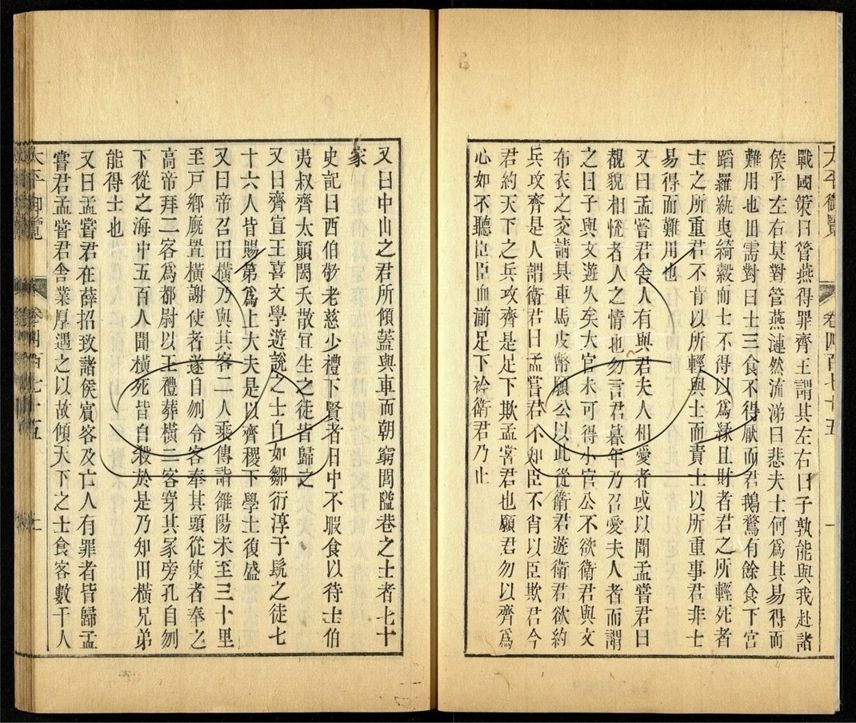 太平御覽
卷四百七十五
一
戰國策曰管燕得罪齊王謂其左右曰子孰能與我赴諸
侯乎左右莫對管燕漣然流涕曰悲夫士何爲其易得而
難用也田需對曰士三食不得厭而君鵝鶩有餘食下宮
蹈羅紈曳綺縠而士不得以爲緣且財者君之所輕死者
士之所重君不肯以所輕與士而責士以所重事君非士
易得而難用也
又曰孟嘗君舍人有與君夫人相愛者或以聞孟嘗君曰
覩貌相悅者人之情也勿言君暮年乃召愛夫人者而謂
之曰子與文遊久矣大官未可得小官公不欲衛君與文
布衣之交請具車馬皮幣願公以此從衛君遊衛君欲約
兵攻齊是人謂衛君曰孟嘗君不知臣不肖以臣欺君今
君約天下之兵攻齊是足下欺孟嘗君也願君勿以齊爲
心如不聽臣臣血湔足下衿衛君乃止
又曰中山之君所傾蓋與車而朝窮閭隘巷之士者七十
家
史記曰西伯敬老慈少禮下賢者日中不暇食以待士伯
夷叔齊太顛閎夭散宜生之徒皆歸之
又曰齊宣王喜文學遊說之士自如鄒衍淳于髡之徒七
十六人皆賜第爲上大夫是以齊稷下學士復盛
又曰帝召田橫乃與其客二人乘傳詣雒陽未至三十里
至戶鄉廐置橫謝使者遂自刎令客奉其頭從使者奉之
高帝拜二客爲都尉以王禮葬橫二客穿其冢旁孔自刎
下從之海中五百人聞橫死皆自殺於是乃知田橫兄弟
能得士也
又曰孟嘗君在薛招致諸侯賓客及亡人有罪者皆歸孟
嘗君孟嘗君舍業厚遇之以故傾天下之士食客數千人
太平御覽
卷四百七十五